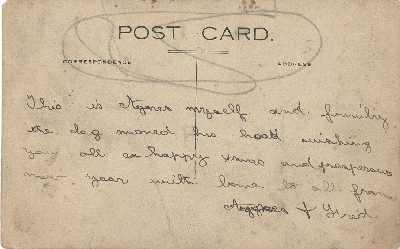 POST CARD.
CORRESPONDENCE ADDRESS
This is Agnes myself and family
the dog moved his head wishing
you all a happy xmas and prosperous
new year with love to all from
Agnes + Fred